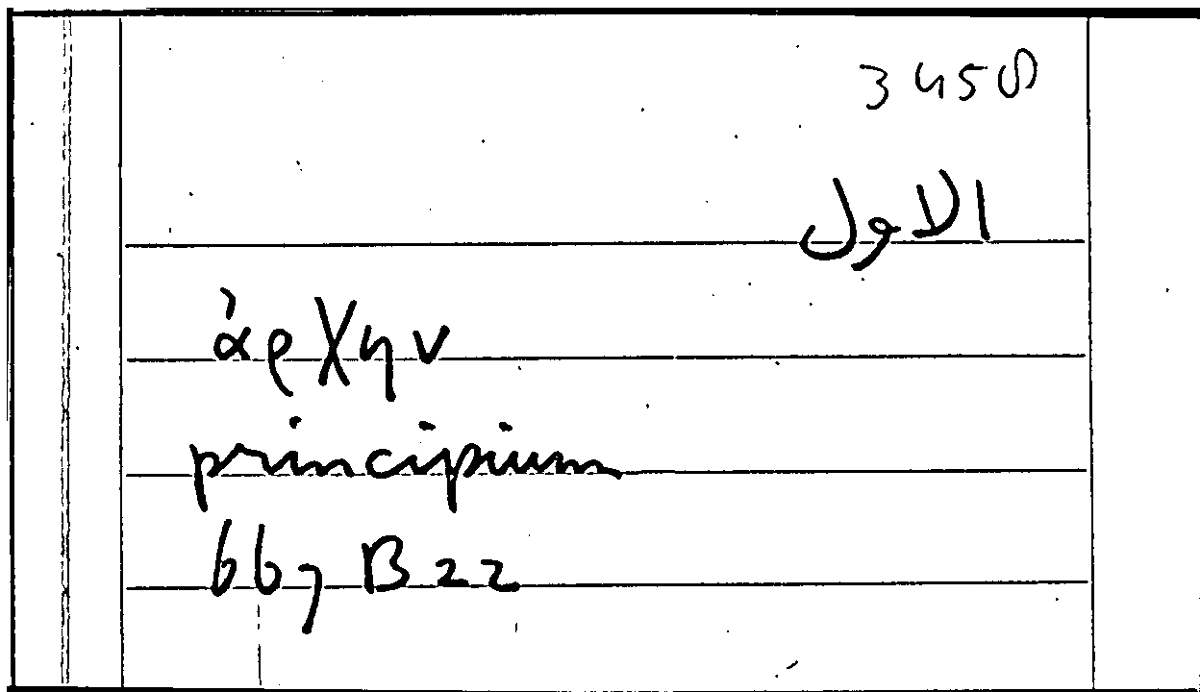 3458
الاول
ἀρχην
principium
667 B 22